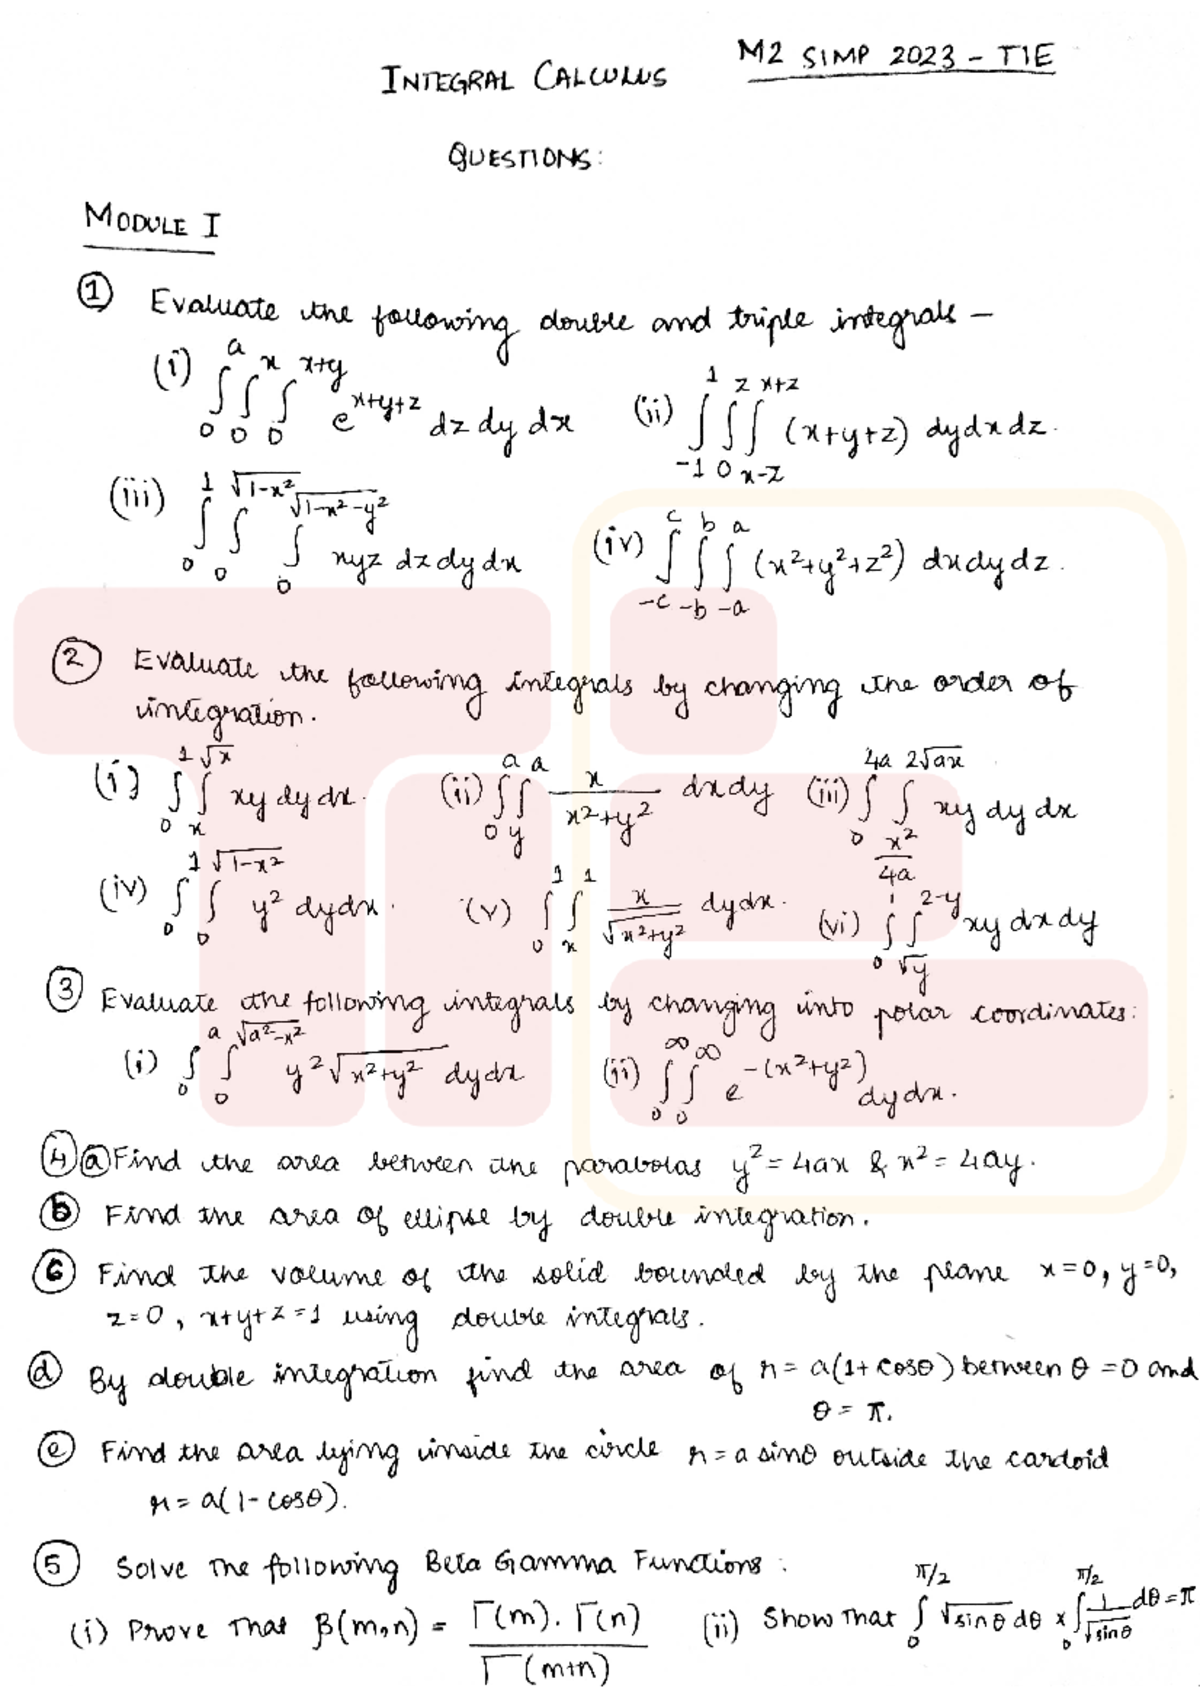 M2 SIMP 2023 - TIE
INTEGRAL CALCULUS
QUESTIONS:
MODULE I
① Evaluate the following double and triple integrals —
(i) ∫₀^a ∫₀^x ∫₀^(x+y) e^(x+y+z) dz dy dx (ii) ∫₋₁^1 ∫₀^z ∫_(x-z)^(x+z) (x+y+z) dy dx dz.
(iii) ∫₀^1 ∫₀^√(1-x²) ∫₀^√(1-x²-y²) xyz dz dy dx (iv) ∫₋c^c ∫₋b^b ∫₋a^a (x²+y²+z²) dx dy dz.
② Evaluate the following integrals by changing the order of
integration.
(i) ∫₀^1 ∫ₓ^√x xy dy dx. (ii) ∫₀^a ∫_y^a x/(x²+y²) dx dy (iii) ∫₀^4a ∫_(x²/4a)^(2√ax) xy dy dx
(iv) ∫₀^1 ∫₀^√(1-x²) y² dy dx. (v) ∫₀^1 ∫ₓ^1 x/√(x²+y²) dy dx. (vi) ∫₀^1 ∫_√y^(2-y) xy dx dy
③ Evaluate the following integrals by changing into polar coordinates:
(i) ∫₀^a ∫₀^√(a²-x²) y²√(x²+y²) dy dx (ii) ∫₀^∞ ∫₀^∞ e^-(x²+y²) dy dx.
④ ⓐ Find the area between the parabolas y² = 4ax & x² = 4ay.
ⓑ Find the area of ellipse by double integration.
ⓒ Find the volume of the solid bounded by the plane x=0, y=0,
z=0, x+y+z=1 using double integrals.
ⓓ By double integration find the area of r = a(1+cosθ) between θ = 0 and
θ = π.
ⓔ Find the area lying inside the circle r = a sinθ outside the cardoid
r = a(1-cosθ).
⑤ Solve the following Beta Gamma Functions:
(i) Prove that β(m,n) = Γ(m). Γ(n) / Γ(m+n) (ii) Show that ∫₀^π/2 √sinθ dθ × ∫₀^π/2 1/√sinθ dθ = π